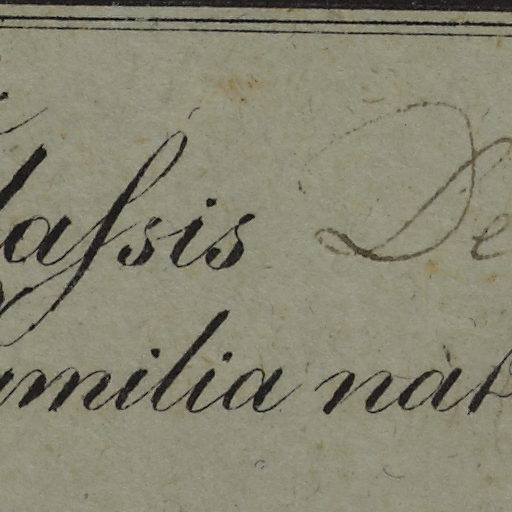 laſsis De
amilia nat